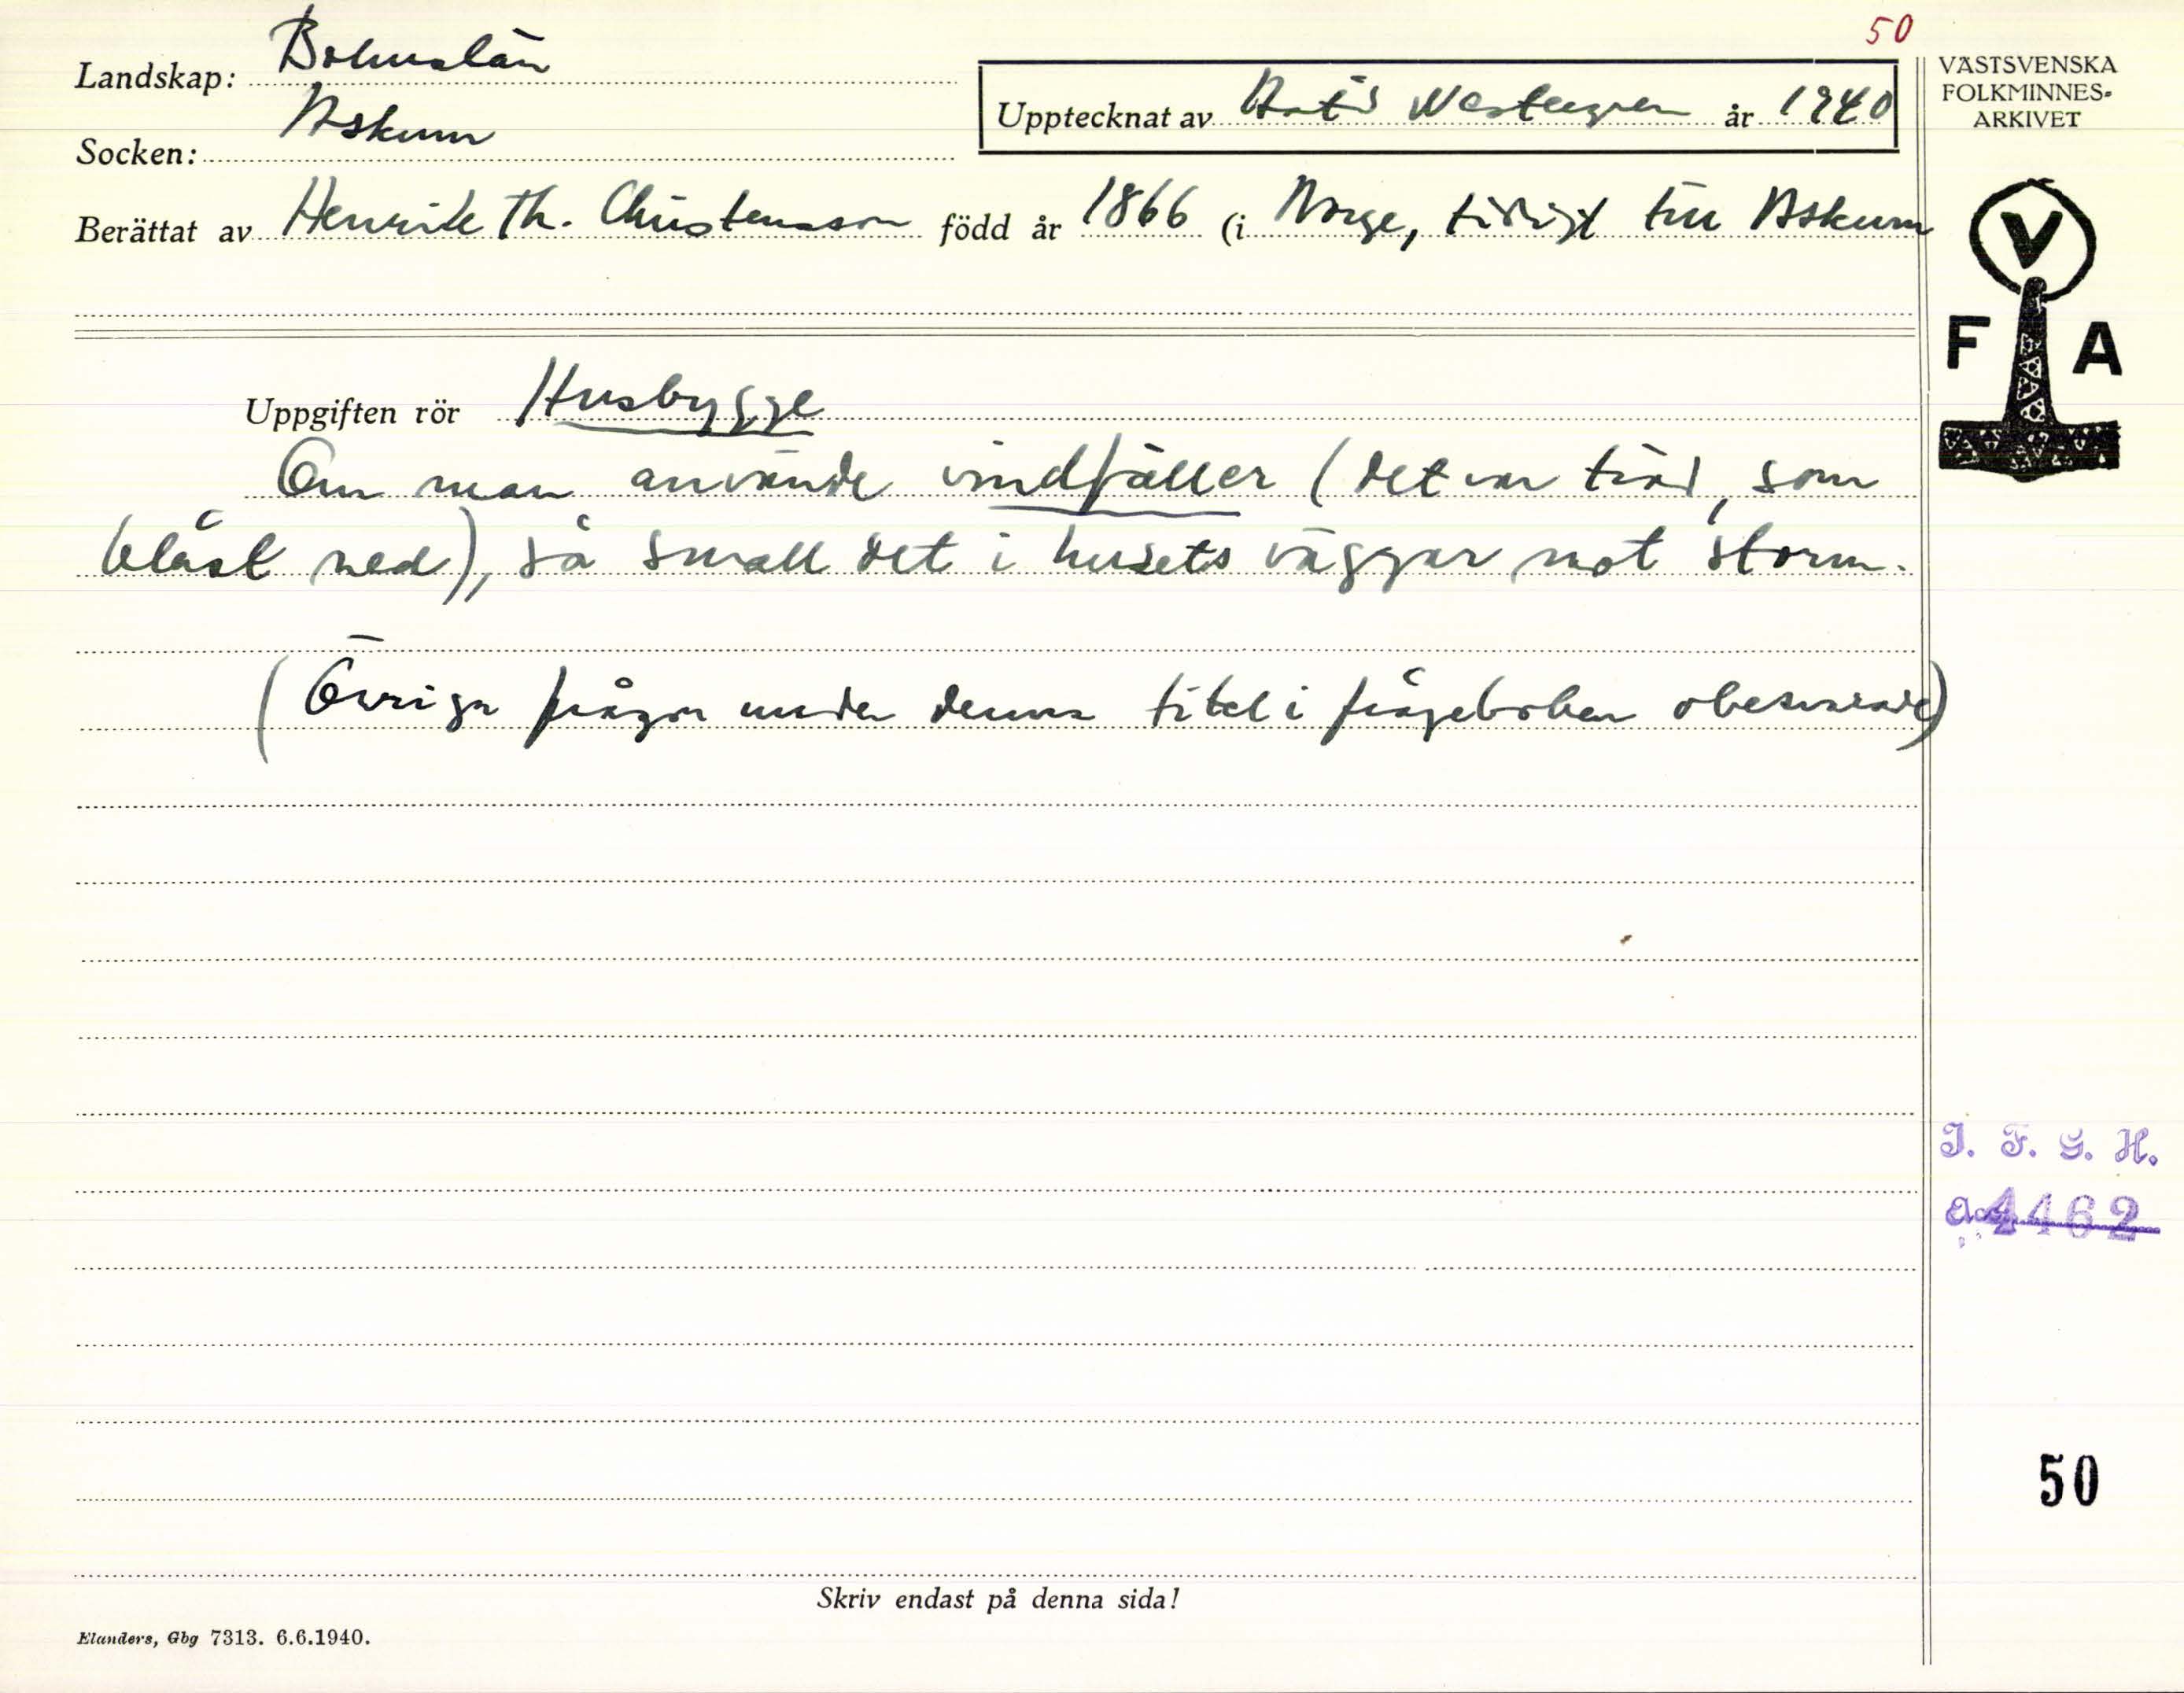 50
Landskap: Bohuslän
Socken: Askum
Upptecknat av Westergren år 1940
Berättat av Henrik Th. Christensson född år 1866 (i Norge, tidigt till Askum
VÄSTSVENSKA
FOLKMINNES-
ARKIVET
V
F A
Uppgiften rör Husbygge
Om man använde vindfäller (det var träd, som
blåst ned), så small det i husets väggar mot storm.
(Övriga frågor under denna titel i frågeboken obesvarade)
I. F. G. H.
Acc. 4462
50
Skriv endast på denna sida!
Elanders, Gbg 7313. 6.6.1940.